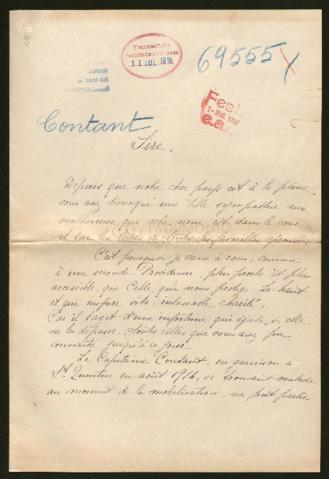 69555
Contant
Sire,
Depuis que notre cher pays est à la peine
vous avez témoigné une telle sympathie aux
malheureux que votre nom est dans le cœur
et sur les lèvres de toutes les familles
C'est pourquoi je viens à vous, comme
à une seconde Providence, plus proche et plus
accessible que Celle qui nous protège Là-haut
et qui inspire votre inlassable charité.
Car il s'agit d'une infortune qui égale, si elle
ne la dépasse, toutes celles que vous avez pu
connaître jusqu'à ce jour.
Le Capitaine Contant, en garnison à
St Quentin en août 1914, se trouvant malade
au moment de la mobilisation, ne put partir